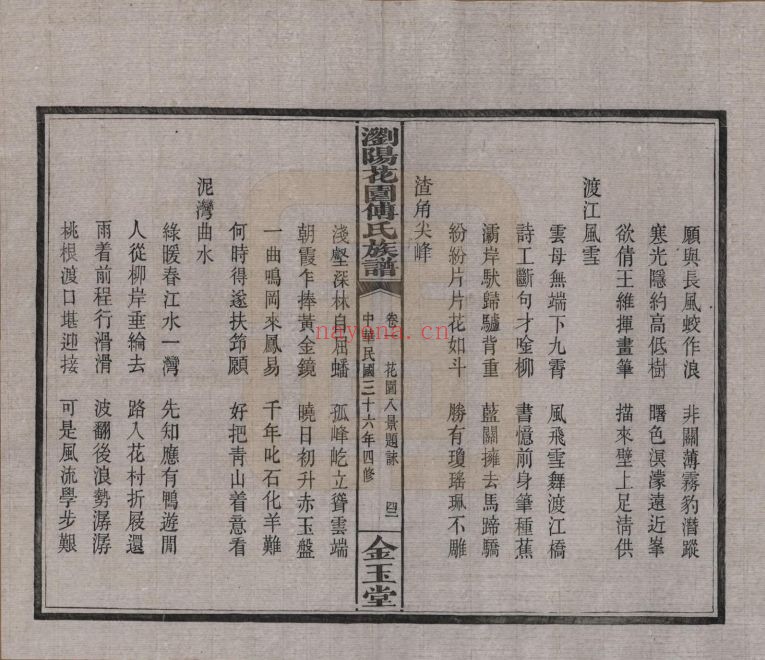 願與長風蛟作浪　非關薄霧豹潛蹤
寒光隱約高低樹　曙色溟濛遠近峯
欲倩王維揮畫筆　描來壁上足清供
渡江風雪
雲母無端下九霄　風飛雪舞渡江橋
詩工斷句才唫柳　書憶前身筆種蕉
灞岸馱歸驢背重　藍關擁去馬蹄驕
紛紛片片花如斗　勝有瓊瑤珮不雕
渣角尖峰
瀏陽花園傅氏族譜
卷
花園八景題詠
中華民國三十六年四修
金玉堂
淺壑深林自屈蟠　孤峰屹立聳雲端
朝霞乍捧黃金鏡　曉日初升赤玉盤
一曲鳴岡來鳳易　千年叱石化羊難
何時得遂扶筇願　好把青山着意看
泥灣曲水
綠暖春江水一灣　先知應有鴨遊閒
人從柳岸垂綸去　路入花村折屐還
雨着前程行滑滑　波翻後浪勢潺潺
桃根渡口堪迎接　可是風流學步艱
nayona.cn